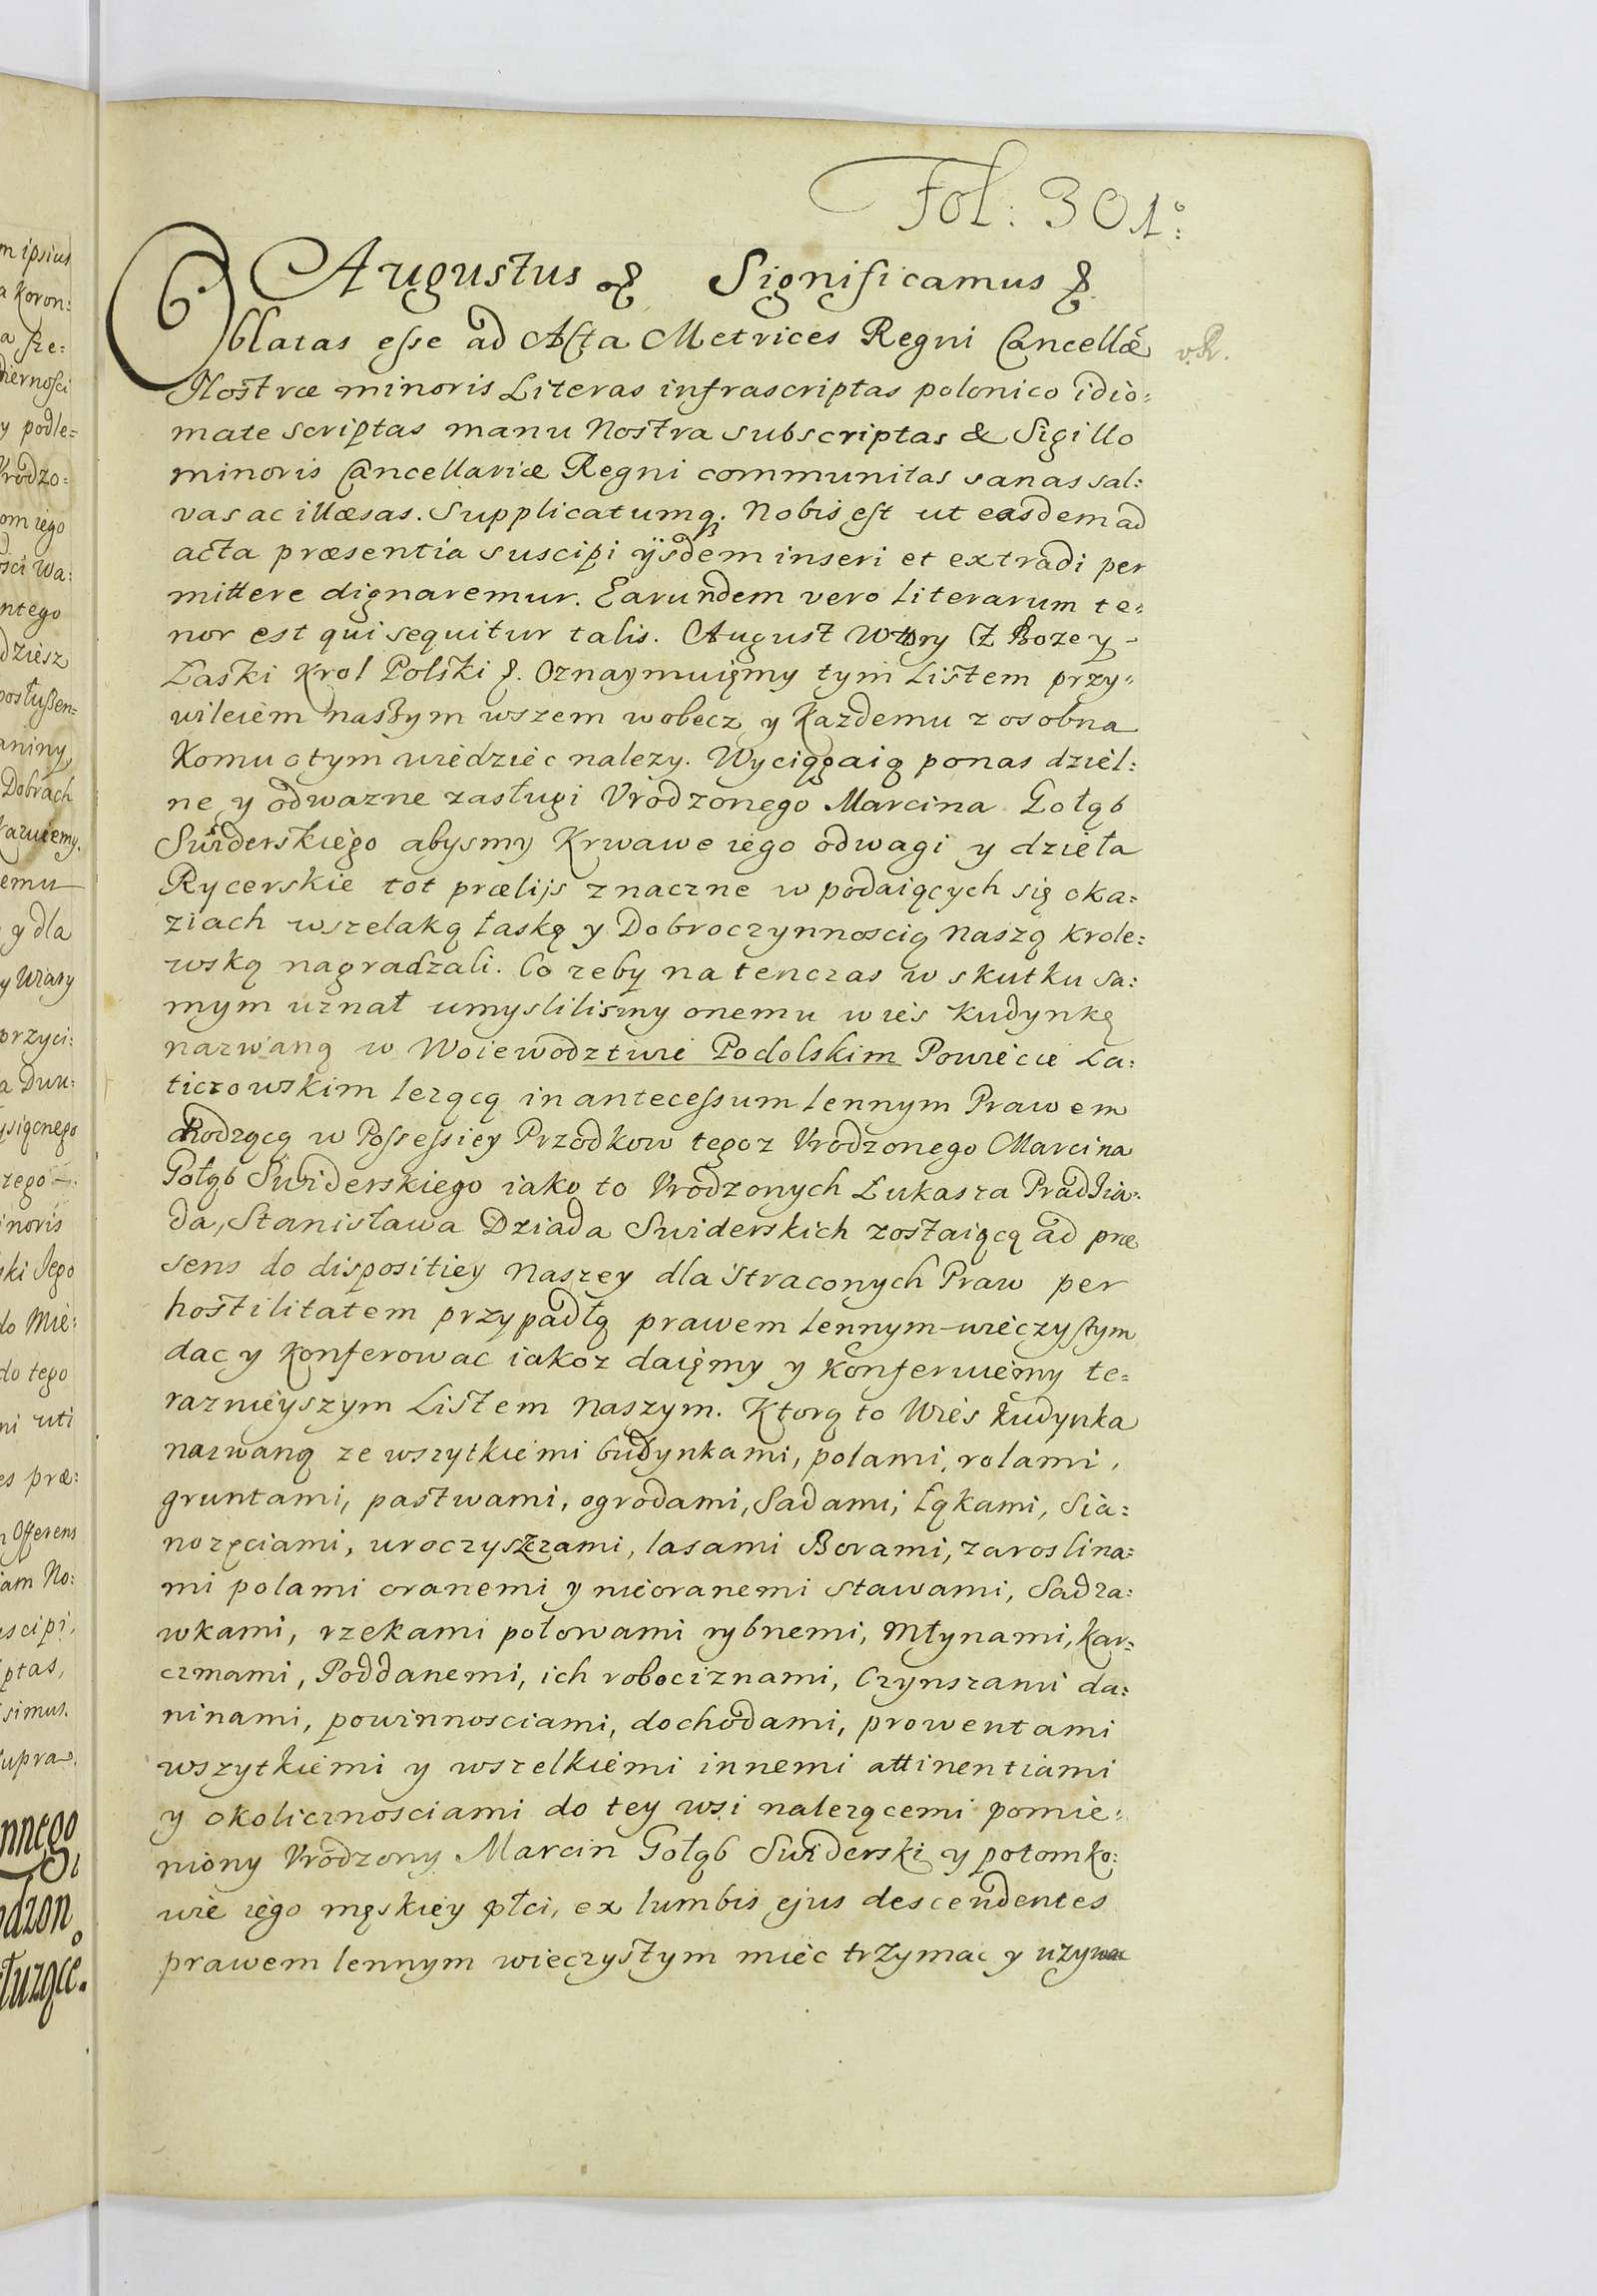 Fol: 301.
Augustus & Significamus &.
Oblatas esse ad Acta Metrices Regni Cancellæ
Nostræ minoris Literas infrascriptas polonico idio=
mate scriptas manu Nostra subscriptas & Sigillo
minoris Cancellariæ Regni communitas sanas sal=
vas ac illæsas. Supplicatumq; Nobis est ut easdem ad
acta præsentia suscipi ijsdem inseri et extradi per
mittere dignaremur. Earundem vero Literarum te=
nor est qui sequitur talis. August Wtory Z Bozey
Łaski Krol Polski &. Oznaymuięmy tym Listem przy=
wileiem naszym wszem wobecz y Kazdemu z osobna
Komu o tym wiedziec nalezy. Wyciągaią ponas dziel=
ne y odwazne zasługi Vrodzonego Marcina Gołąb
Swiderskiego abysmy Krwawe iego odwagi y dzieła
Rycerskie tot prælijs znaczne w podaiących się oka=
ziach wszelaką łaską y Dobroczynnoscią Naszą krole=
wską nagradzali. Co zeby na tenczas w skutku sa=
mym uznał umyslilismy onemu wies Kudynkę
nazwaną w Woiewodztwie Podolskim Powiecie La=
ticzowskim lezącą in antecessum lennym Prawem
chodzącą w Possessiey Przodkow tegoz Vrodzonego Marcina
Gołąb Swiderskiego iako to Vrodzonych Łukasza Pradzia=
da, Stanisława Dziada Swiderskich zostaiącą ad præ
sens do dispositiey Naszey dla straconych Praw per
hostilitatem przypadłą prawem lennym wieczystym
dac y Konferowac iakoz daięmy y Konferuiemy te=
raznieyszym Listem Naszym. Ktorą to Wies Kudynka
nazwaną ze wszytkiemi budynkami, polami, rolami,
gruntami, pastwami, ogrodami, Sadami, Łąkami, Sia=
nozęciami, uroczyszczami, lasami Borami, zaroslina=
mi polami oranemi y nieoranemi stawami, Sadza=
wkami, rzekami połowami rybnemi, Młynami, Kar=
czmami, Poddanemi, ich robociznami, Czynszami da=
ninami, powinnosciami, dochodami, prowentami
wszytkiemi y wszelkiemi innemi attinentiami
y okolicznosciami do tey wsi nalezącemi pomie=
niony Vrodzony Marcin Gołąb Swiderski y potomko=
wie iego męskiey płci, ex lumbis ejus descendentes
prawem lennym wieczystym miec trzymac y uzywac